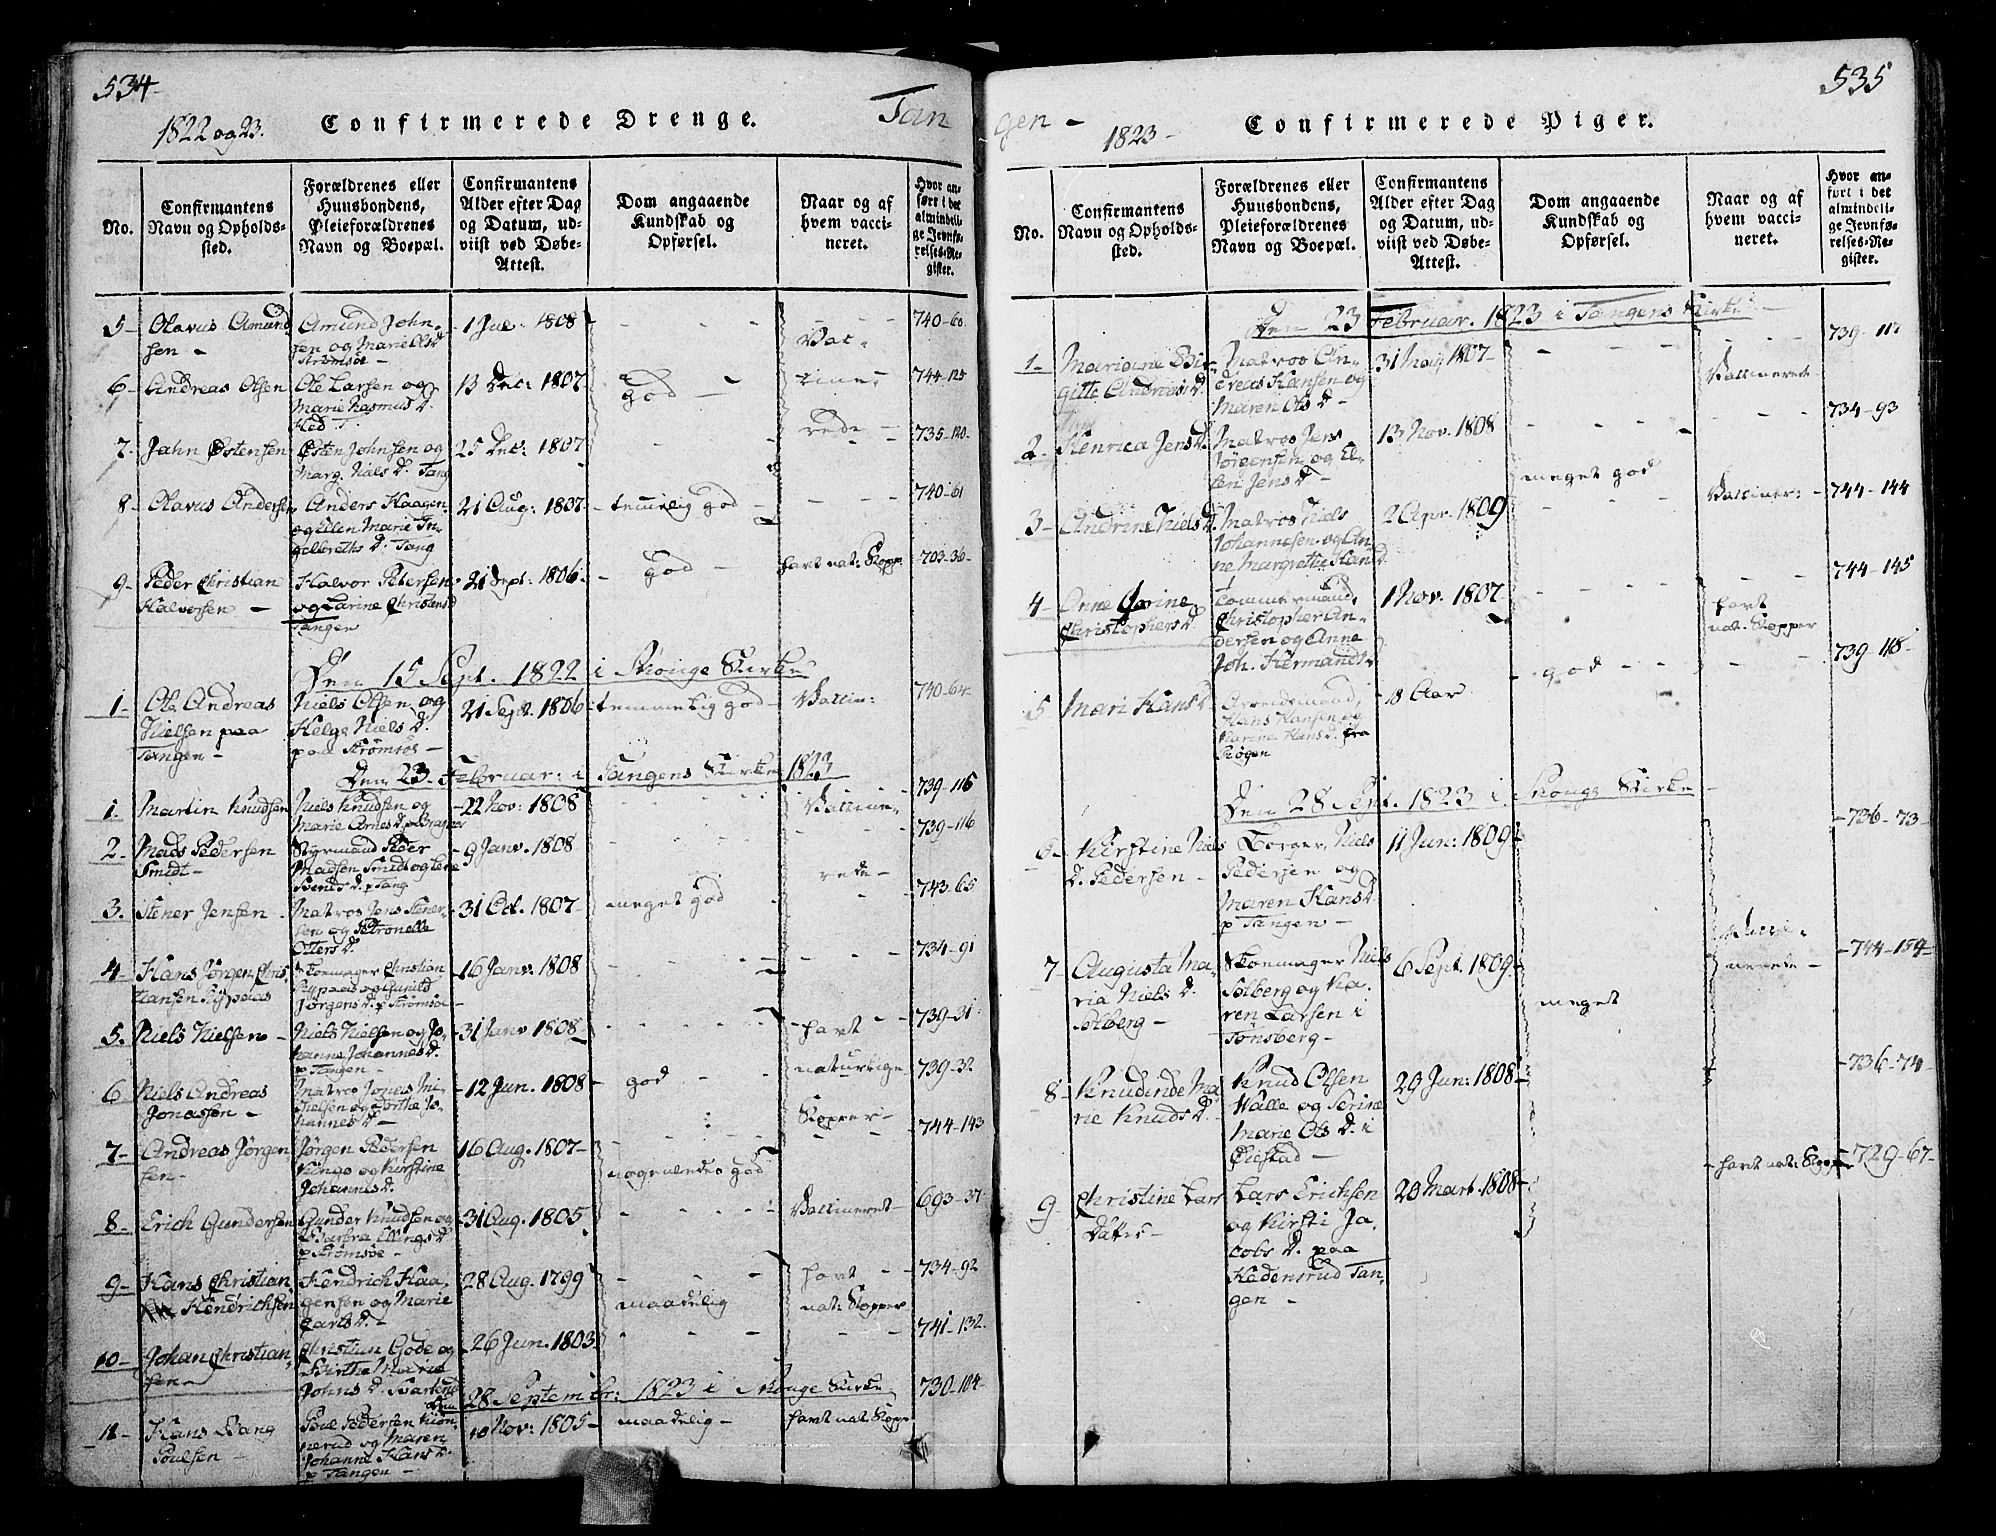 534
1822 og 23.
Confirmerede Drenge.
Tan
No.
Confirmantens
Navn og Opholds-
sted.
Forældrenes eller
Huusbondens,
Pleieforældrenes
Navn og Boepæl.
Confirmantens
Alder efter Dag
og Datum, ud-
viist ved Døbe-
Attest.
Dom angaaende
Kundskab og
Opførsel.
Naar og af
hvem vacci-
neret.
Hvor an-
ført i det
almindeli-
ge Jevnfø-
relses-Re-
gister.
5- Olavus Amund
sen -
Amund John-
sen og Marie Ols D.
Strømsøe -
1 Jul. 1808
Vac-
740-60
6- Andreas Olsen
Ole Larsen og
Marie Rasmus D.
13 Dec: 1807
god -
cine-
744-125
7- Jahn Østensen
Østen Johnsen og
Marg. Niels D. Tang
25 Dec: 1807
rede -
735-120
8- Olavus Andersen
Anders Haagen
og Ellen Marie In-
gelbreths D. Tang
21 Aug: 1807
temelig god -
740-61
9- Peder Christian
Halvorsen -
Halvor Petersen
og Larine Christens D
Tangen
21 Sept: 1806
god -
havt nat: Kopper
703-36
Den 15 Sept. 1822 i Skouge Kirke
1- Ole Andreas
Nielsen paa
Tangen -
Niels Olsen og
Helge Niels D.
paa Strømsøe -
21 Sept. 1806
temmelig god -
Vaccin:
740-64
Den 23 Februar: i Tangens Kirke 1823
1. Martin Knudsen
Niels Knudsen og
Marie Arnes D. p Bragnæs
22 Nov: 1808
Vaccine-
739-115
2- Mads Pedersen
Smidt -
Styrmand Peder
Madsen Smidt og Lene
Bents D. p Tang
9 Janv. 1808
rede -
739-116
3. Stener Jensen
Matros Jens Stener-
sen og Petronelle
Otters D.
31 Oct. 1807
meget god
743-65
4- Hans Jørgen Chris-
tiansen Rypaas
Skoemager Christian
Rypaas og Gunild
Jørgens D. p Strømsøe
16 Janv. 1808
734-91
5. Niels Nielsen
Niels Nielsen og Jo-
hanne Johannes D.
p Tangen -
31 Janv 1808
havt
739-31
6 Niels Andreas
Jonassen -
Matros Jonas Ni-
elsen og Dorthe Jo-
hannes D -
12 Jun. 1808
god
naturlige
Kopper -
739-32
7- Andreas Jørgen
sen -
Jørgen Pedersen
Kongo og Kirstine
Johannes D.
16 Aug. 1807
nogenledes god
744-143
8- Erich Gundersen
Gunder Knudsen og
Barbra Ellings D
p Strømsøe -
31 Aug. 1805
Vaccineret -
693-37
9- Hans Christian
Hendrichsen
Hendrich Haa-
gensen og Marie
Carls D. -
28 Aug. 1799
maadelig
havt
nat: Kopper
734-92
10- Johan Christian-
sen
Christian Gode og
Birthe Marie
Johns D.
26 Jun. 1803
741-132
Den 28 September: 1823 i Skouge Kirke
11- Hans Bang
Poulsen -
Poul Pedersen Kion
nerud og Maren
Johanne Hans D.
p Tangen -
10 Nov: 1805
maadelig -
havt nat: Kopper
730-104
535
gen -
1823 -
Confirmerede Piger.
No.
Confirmantens
Navn og Opholds-
sted.
Forældrenes eller
Huusbondens,
Pleieforældrenes
Navn og Boepæl.
Confirmantens
Alder efter Dag
og Datum, ud-
viist ved Døbe-
Attest.
Dom angaaende
Kundskab og
Opførsel.
Naar og af
hvem vacci-
neret.
Hvor an-
ført i det
almindeli-
ge Jevnfø-
relses-Re-
gister.
Den 23 Februar. 1823 i Tangens Kirke -
1- Mariane Bir-
gitte Andreas D.
Matros An-
dreas Hansen og
Maren Ols D -
31 Maj 1807
Vaccinerede
739-117
2- Henrica Jens D.
Matros Jens
Jørgensen og El-
len Jens D -
13 Nov. 1808
meget god
734-93
3- Andrine Niels D.
Matros Niels
Johannesen og An-
ne Margrethe Hans D
2 Apr. 1809
Vacciner:
744-144
4- Anne Carine
Christophers D.
Tommermand,
Christopher An-
dersen og Anne
Joh. Hermands
1 Nov. 1807
havt
nat: Kopper
744-145
5 Mari Hans D
Arbeidsmand,
Hans Hansen og
Karine Hans D. fra
Røgen
Aar
god
739-118
Den 28 Sept. 1823 i Skouge Kirke
6- Kirstine Niels
D. Pedersen -
Borger, Niels
Pedersen og
Maren Hans D.
p Tangen -
11 Jun: 1809
736-73
7- Augusta Ma-
ria Niels D.
Solberg -
Skoemager Niels
Solberg og Ka-
ren Larsen i
Tønsberg -
6 Sept. 1809
meget
Vacci-
nerede -
744-154
8- Knudinde Ma
rie Knuds D.
Knud Olsen
Walle og Serine
Marie Ols D. i
Øiestad -
29 Jun: 1808
736-74
9- Christine Lars
Datter -
Lars Erichsen
og Kirsti Ja-
cobs D. paa
Hedensrud Tan-
gen -
20 Mart. 1808
havt nat: Kopper
729-67